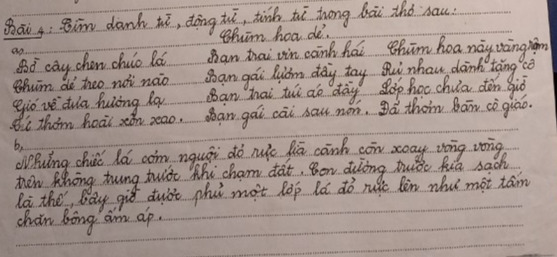 Bài 4: Tìm danh từ, động từ, tính từ trong bài thơ sau:
a, Chùm hoa dẻ.
Bờ cây chen chúc lá Bạn trai vin cành hái Chùm hoa này vàng rộm
Chùm dẻ treo nơi nào Bạn gái lượm đầy tay Rủ nhau dành tặng cô
Gió về đưa hương lạ Bạn trai túi áo đầy Lớp học chưa đến giờ
Cứ thơm hoài xôn xao. Bạn gái cài sau nón. Đã thơm bàn cô giáo.
b,
Những chiếc lá cơm nguội đỏ rực lìa cành còn xoay vòng vòng
trên không trung trước khi chạm đất. Con đường trước kia sạch
là thế, bây giờ được phủ một lớp lá đỏ rực lên như một tấm
chăn bông ấm áp.